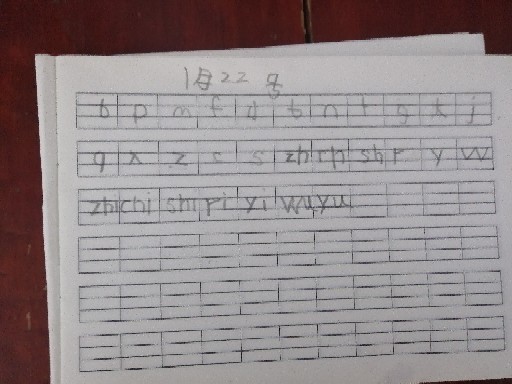 1月22号
b p m f d t n l g k j
q x z c s zh ch sh r y w
zhi chi shi ri yi wu yu